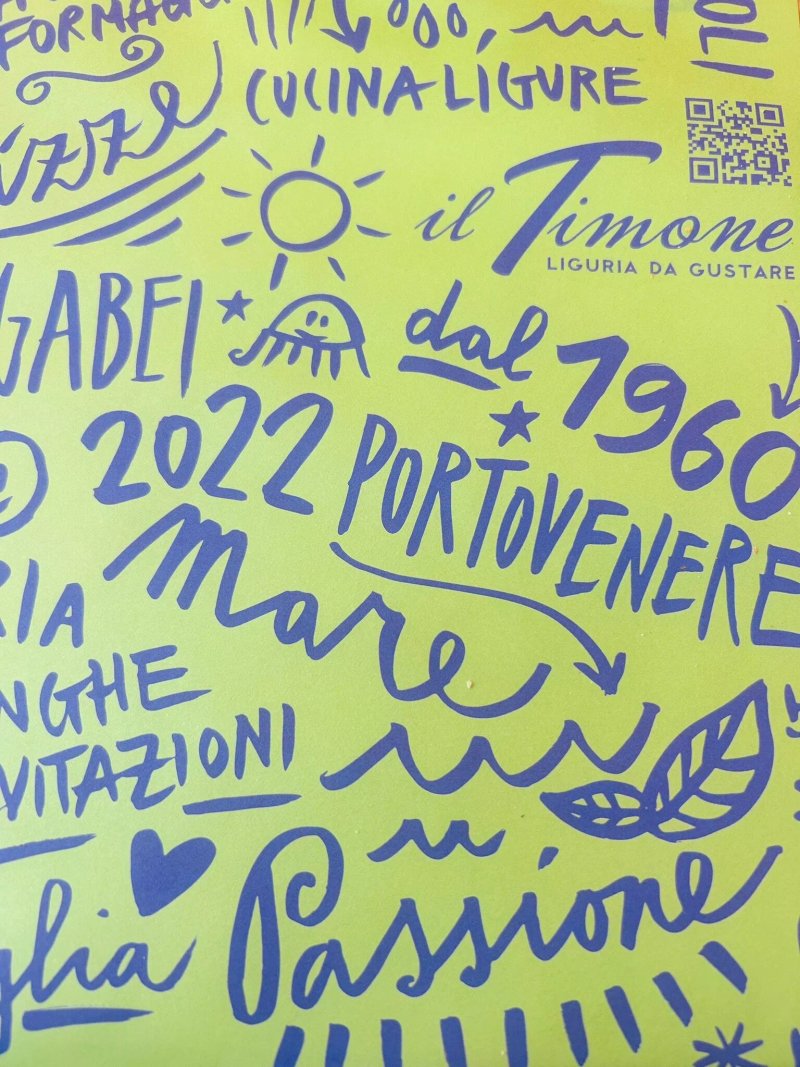 FORMAGGI
CUCINA LIGURE
il Timone
LIGURIA DA GUSTARE
GABEI
dal 1960
2022 PORTOVENERE
Mare
VITAZIONI
Passione